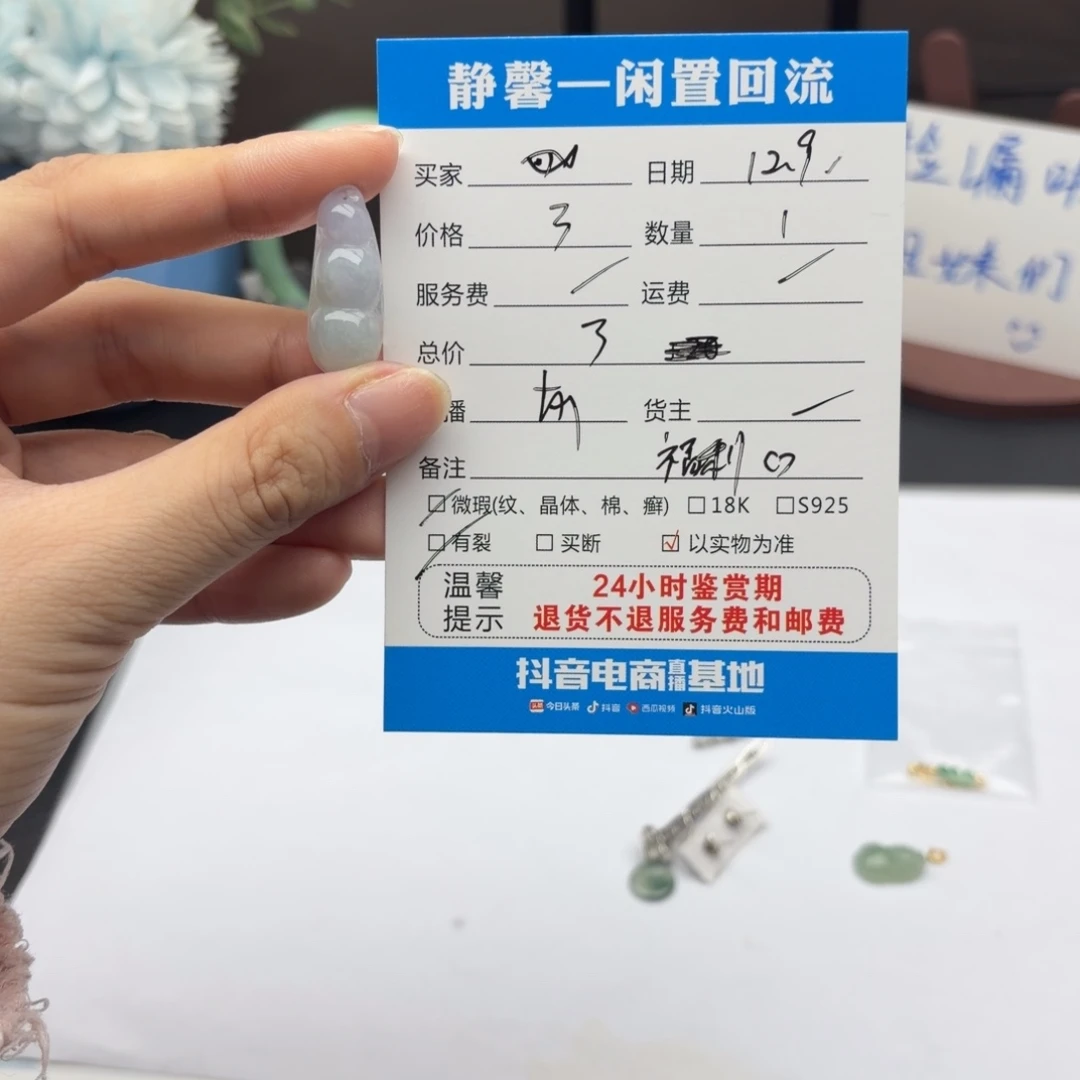 静馨—闲置回流
买家 日期 12.9
价格 3 数量 1
服务费 / 运费 /
总价 3
播 货主 /
备注 福利
□微瑕(纹、晶体、棉、癣) □18K □S925
□有裂 □买断 ☑以实物为准
温馨提示
24小时鉴赏期
退货不退服务费和邮费
抖音电商直播基地
头条 今日头条 抖音 西瓜视频 抖音火山版
漏
妹们